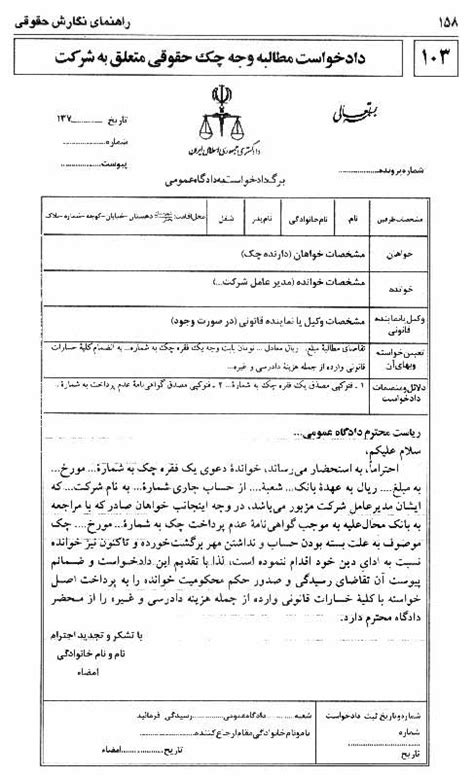 ۱۵۸
راهنمای نگارش حقوقی
۱۰۳
دادخواست مطالبه وجه چک حقوقی متعلق به شرکت
بسمه تعالی
دادگستری جمهوری اسلامی ایران
تاریخ ............ ۱۳۷
شماره................
پیوست................
شماره پرونده................
برگ دادخواست به دادگاه عمومی
مشخصات طرفین
نام
نام خانوادگی
نام پدر
شغل
محل اقامت: شهرستان دهستان - خیابان - کوچه - شماره - پلاک
خواهان
مشخصات خواهان (دارنده چک)
خوانده
مشخصات خوانده (مدیر عامل شرکت...)
وکیل یا نماینده قانونی
مشخصات وکیل یا نماینده قانونی (در صورت وجود)
تعیین خواسته وبهای آن
تقاضای مطالبهٔ مبلغ... ریال معادل ... تومان بابت وجه یک فقره چک به شماره... به انضمام کلیهٔ خسارات
قانونی وارده از جمله هزینهٔ دادرسی و غیره...
دلائل و منضمات دادخواست
۱ - فتوکپی مصدق یک فقره چک به شمارهٔ... ۲ - فتوکپی مصدق گواهی‌نامهٔ عدم پرداخت به شمارهٔ...
ریاست محترم دادگاه عمومی...
سلام علیکم،
احتراماً، به استحضار می‌رساند، خواندهٔ دعوی یک فقره چک به شمارهٔ... مورخ...
به مبلغ.... ریال به عهدهٔ بانک... شعبهٔ.... از حساب جاری شمارهٔ... به نام شرکت... که
ایشان مدیر عامل شرکت مزبور می‌باشد، در وجه اینجانب خواهان صادر که با مراجعه
به بانک محال‌علیه به موجب گواهی‌نامهٔ عدم پرداخت چک به شمارهٔ... مورخ.... چک
موصوف به علت بسته بودن حساب و نداشتن مهر برگشت خورده و تاکنون نیز خوانده
نسبت به ادای دین خود اقدام ننموده است، لذا با تقدیم این دادخواست و ضمائم
پیوست آن تقاضای رسیدگی و صدور حکم محکومیت خوانده را به پرداخت اصل
خواسته با کلیهٔ خسارات قانونی وارده از جمله هزینه دادرسی و غیره را از محضر
دادگاه محترم دارد.
با تشکر و تجدید احترام
نام و نام خانوادگی
امضاء
شماره و تاریخ ثبت دادخواست
شماره
تاریخ
شعبه ........ دادگاه عمومی........ رسیدگی فرمائید
نام و نام خانوادگی مقام ارجاع کننده................
تاریخ............ امضاء